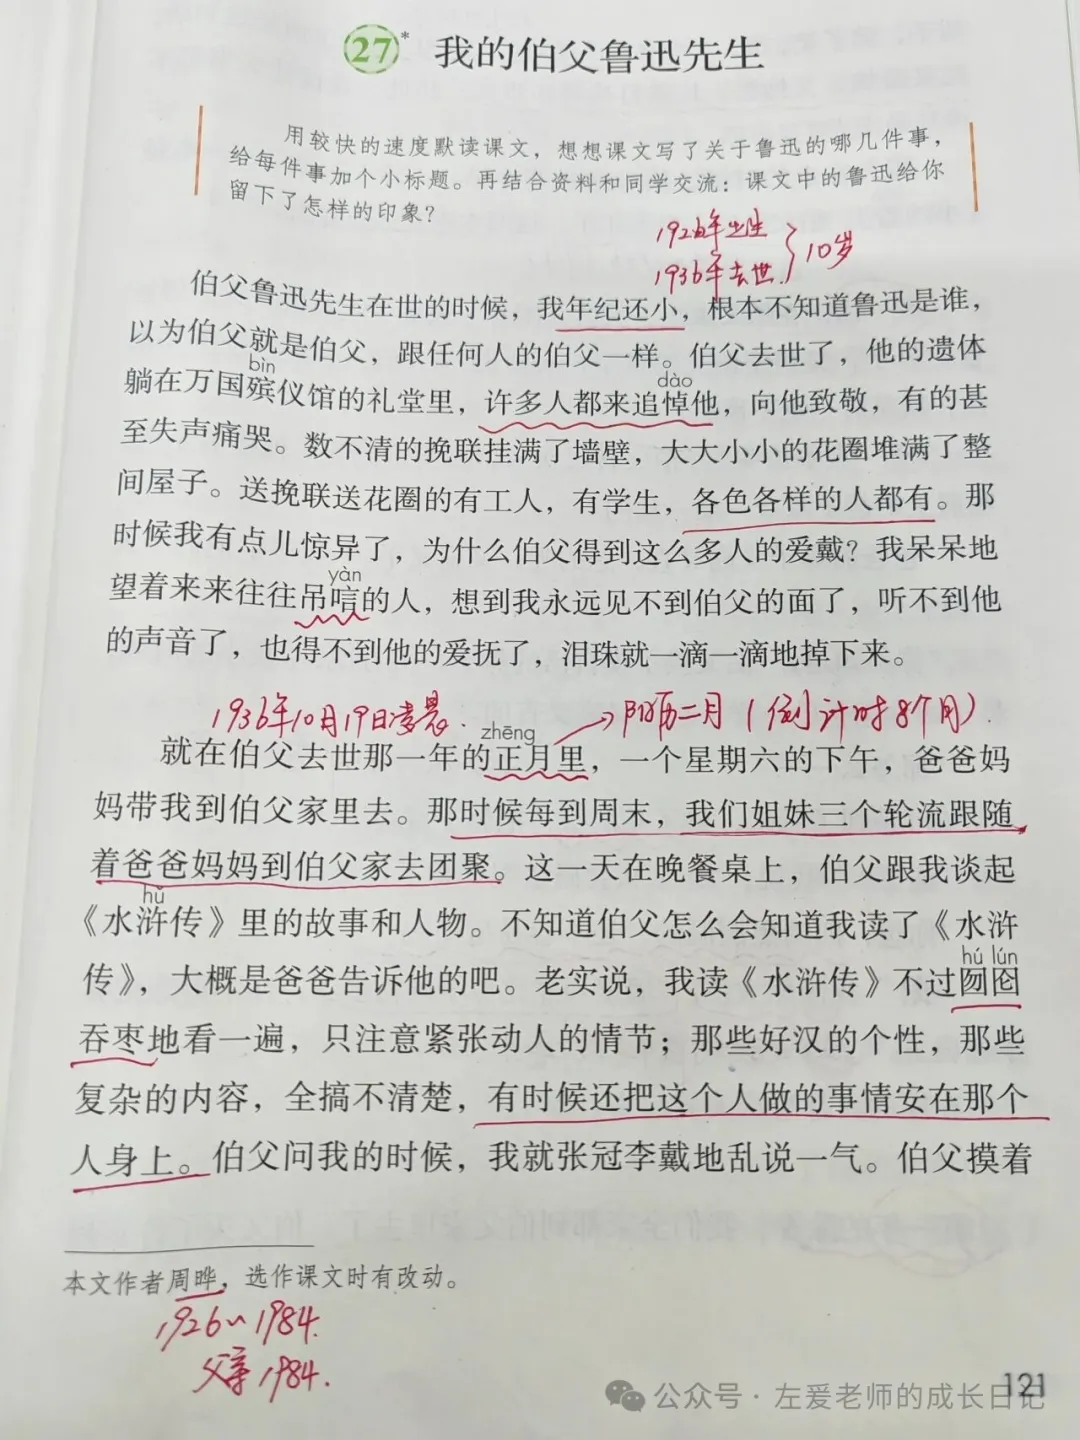 27* 我的伯父鲁迅先生
用较快的速度默读课文，想想课文写了关于鲁迅的哪几件事，
给每件事加个小标题。再结合资料和同学交流：课文中的鲁迅给你
留下了怎样的印象？
1926年出生
1936年去世 } 10岁
伯父鲁迅先生在世的时候，我年纪还小，根本不知道鲁迅是谁，
以为伯父就是伯父，跟任何人的伯父一样。伯父去世了，他的遗体
bìn
dào
躺在万国殡仪馆的礼堂里，许多人都来追悼他，向他致敬，有的甚
至失声痛哭。数不清的挽联挂满了墙壁，大大小小的花圈堆满了整
间屋子。送挽联送花圈的有工人，有学生，各色各样的人都有。那
时候我有点儿惊异了，为什么伯父得到这么多人的爱戴？我呆呆地
yàn
望着来来往往吊唁的人，想到我永远见不到伯父的面了，听不到他
的声音了，也得不到他的爱抚了，泪珠就一滴一滴地掉下来。
1936年10月19日凌晨.
→阳历二月（倒计时8个月）.
zhēng
就在伯父去世那一年的正月里，一个星期六的下午，爸爸妈
妈带我到伯父家里去。那时候每到周末，我们姐妹三个轮流跟随
着爸爸妈妈到伯父家去团聚。这一天在晚餐桌上，伯父跟我谈起
hǔ
《水浒传》里的故事和人物。不知道伯父怎么会知道我读了《水浒
hú lún
传》，大概是爸爸告诉他的吧。老实说，我读《水浒传》不过囫囵
吞枣地看一遍，只注意紧张动人的情节；那些好汉的个性，那些
复杂的内容，全搞不清楚，有时候还把这个人做的事情安在那个
人身上。伯父问我的时候，我就张冠李戴地乱说一气。伯父摸着
本文作者周晔，选作课文时有改动。
1926~1984.
父亲1984.
121
公众号·左爱老师的成长日记